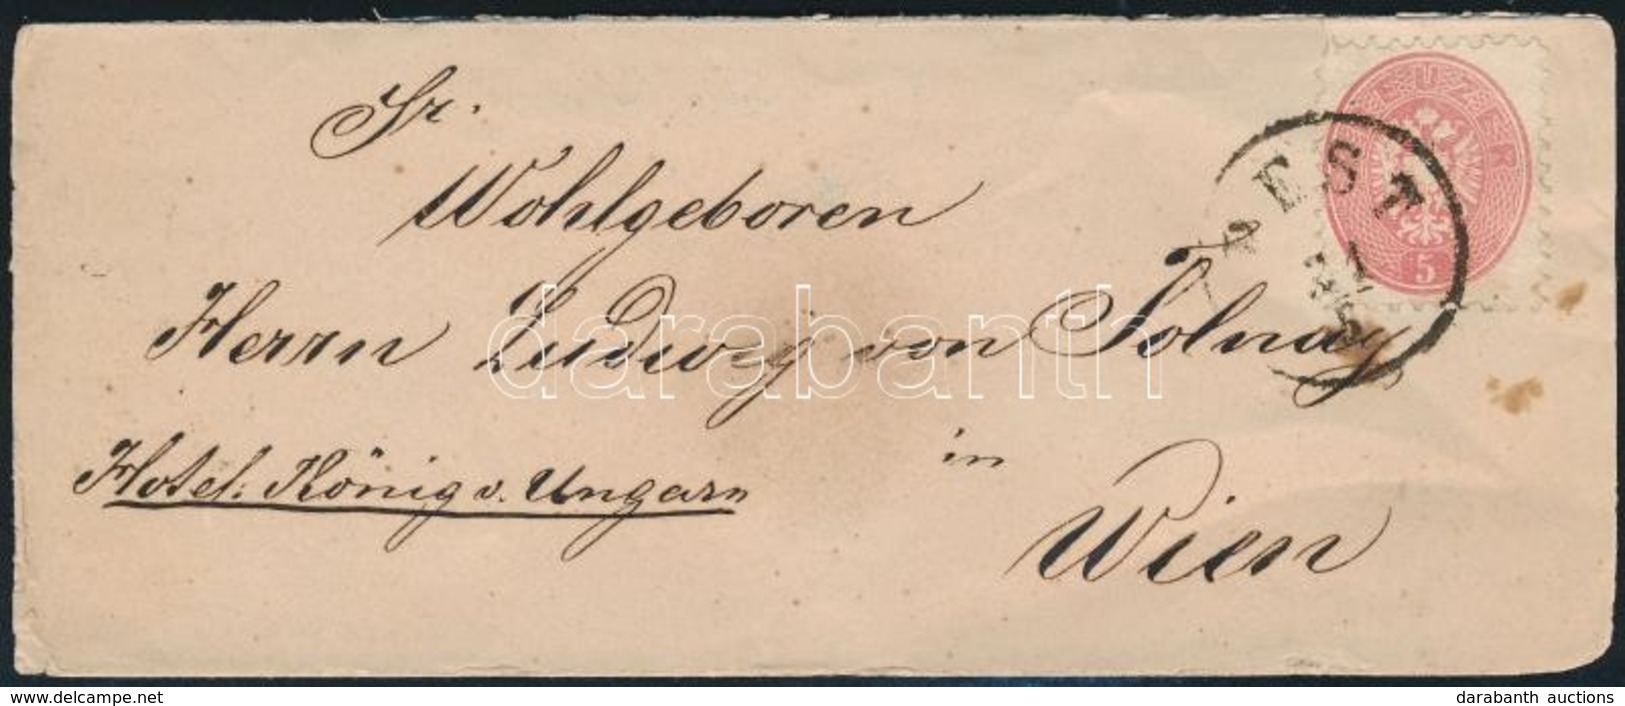 Sr.
Wohlgeboren
Herrn Ludwig von Tolnay
in
Hotel: König v. Ungarn
Wien
PEST
5
darabanth
www.delcampe.net
darabanth auctions